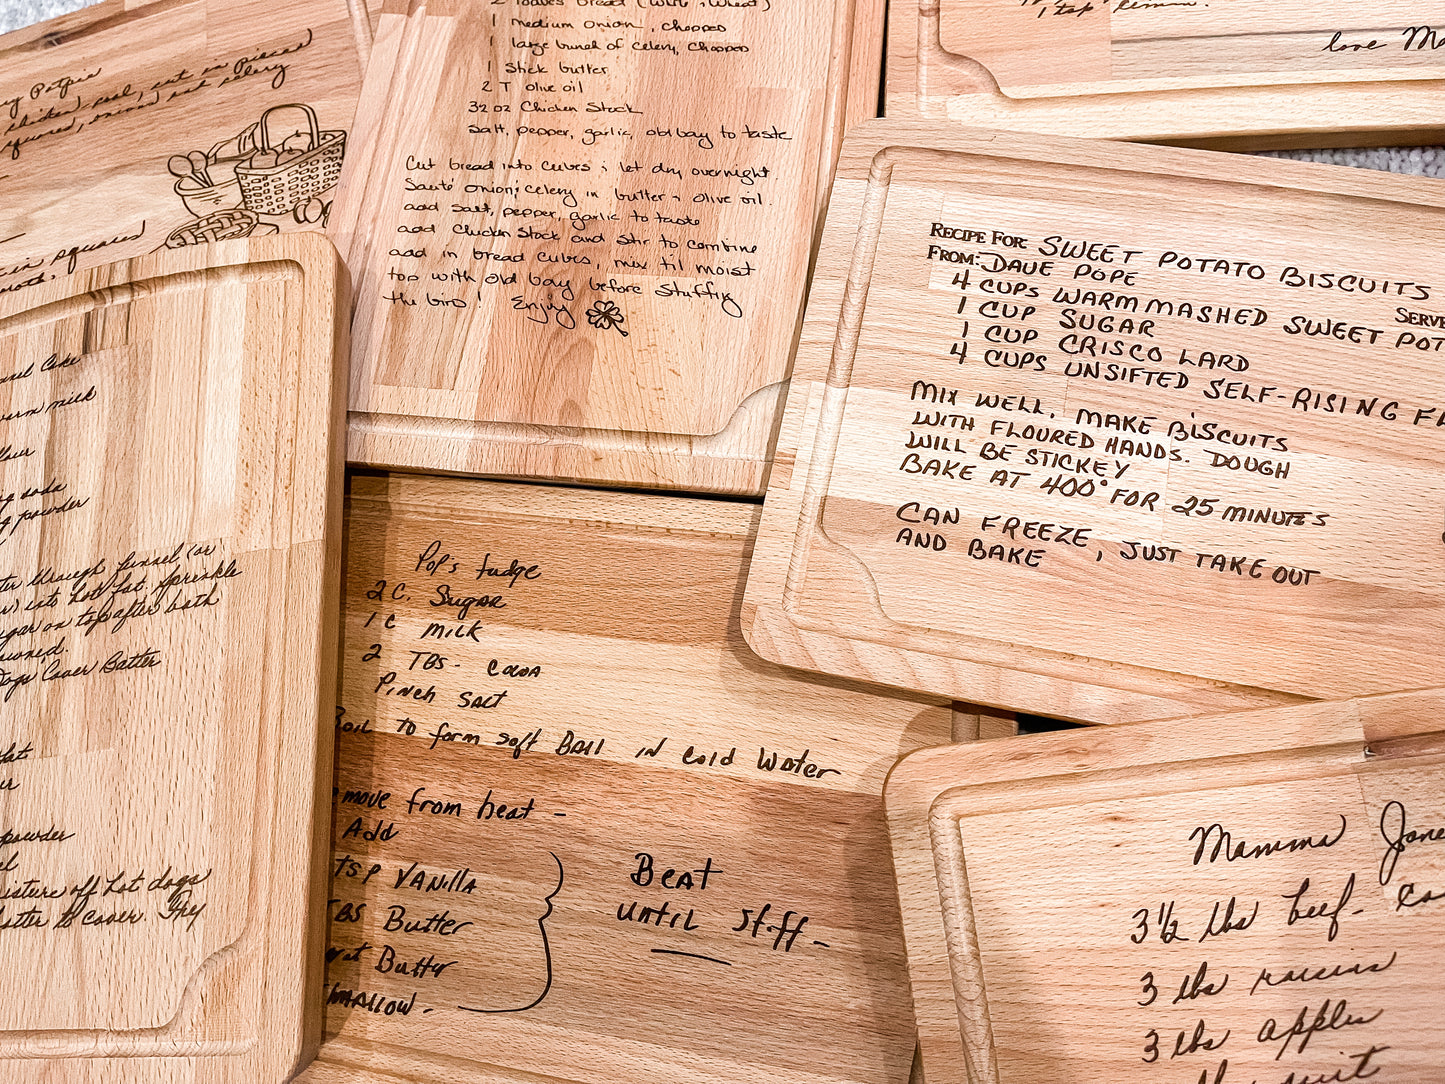 Potpie
chicken
cut in pieces
onions and celery
in squares
2 loaves bread (white & wheat)
1 medium onion, chopped
1 large bunch of celery, chopped
1 Stick butter
2 T olive oil
32 oz Chicken Stock
salt, pepper, garlic, old bay to taste
Cut bread into cubes & let dry overnight
Sauté onion & celery in butter & olive oil.
add salt, pepper, garlic to taste
add chicken stock and stir to combine
add in bread cubes, mix til moist
top with old bay before stuffing
the bird! Enjoy
1 tsp lemon.
love
RECIPE FOR: SWEET POTATO BISCUITS
FROM: DAVE POPE
SERVE
4 CUPS WARM MASHED SWEET POT
1 CUP SUGAR
1 CUP CRISCO LARD
4 CUPS UNSIFTED SELF-RISING FL
MIX WELL. MAKE BISCUITS
WITH FLOURED HANDS. DOUGH
WILL BE STICKEY
BAKE AT 400° FOR 25 MINUTES
CAN FREEZE, JUST TAKE OUT
AND BAKE
Cake
warm milk
soda
powder
through funnel (or
into hot fat. Sprinkle
on top after both
Dogs Cover Batter
powder
off hot dogs
to cover. Fry
Pop's fudge
2 C. Sugar
1 C MILK
2 TBS- COCOA
PINCH SALT
Boil TO form soft BALL IN Cold Water
move from heat -
Add
TSP VANilla
TBS Butter
Butter
MALLOW -
Beat
until Stiff -
Mamma Jane
3 1/2 lbs beef -
3 lbs raisins
3 lbs apples